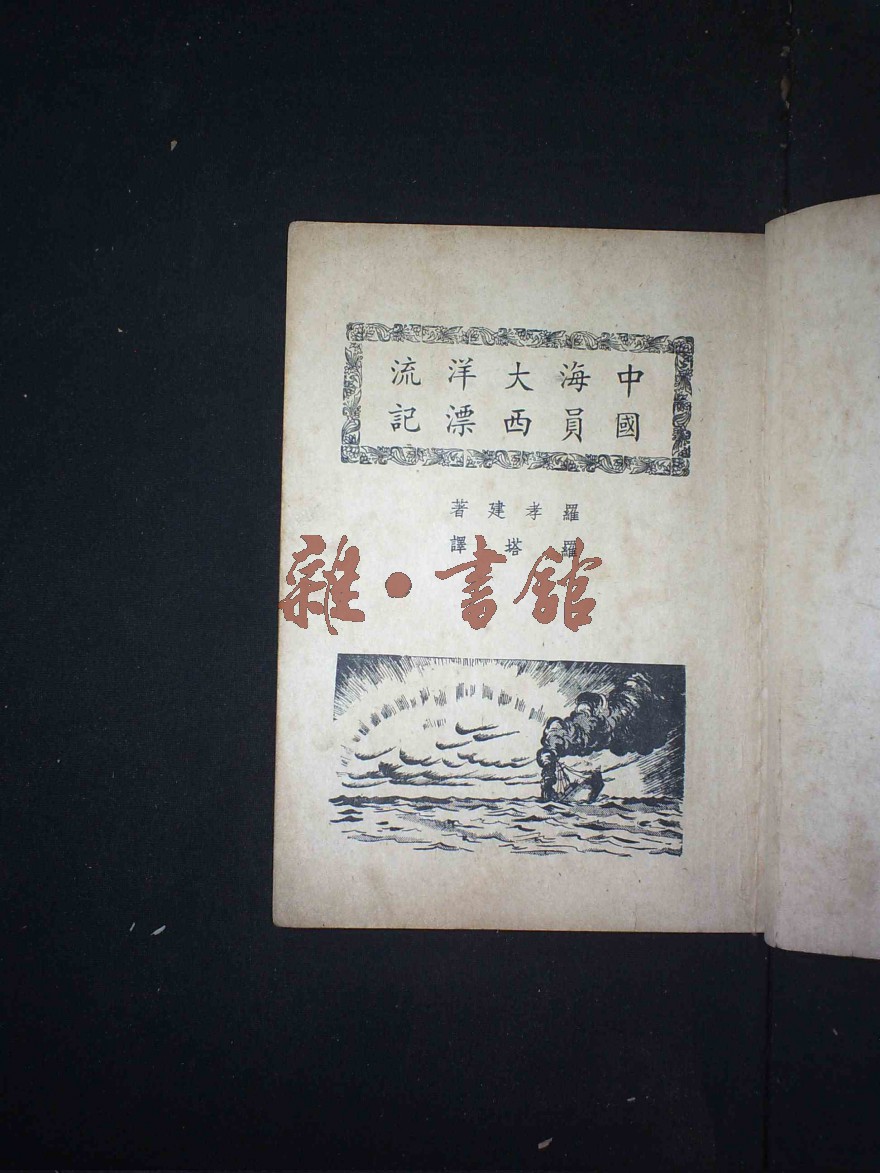 中國海員大西洋漂流記
羅孝建著
羅塔譯
雜·書館